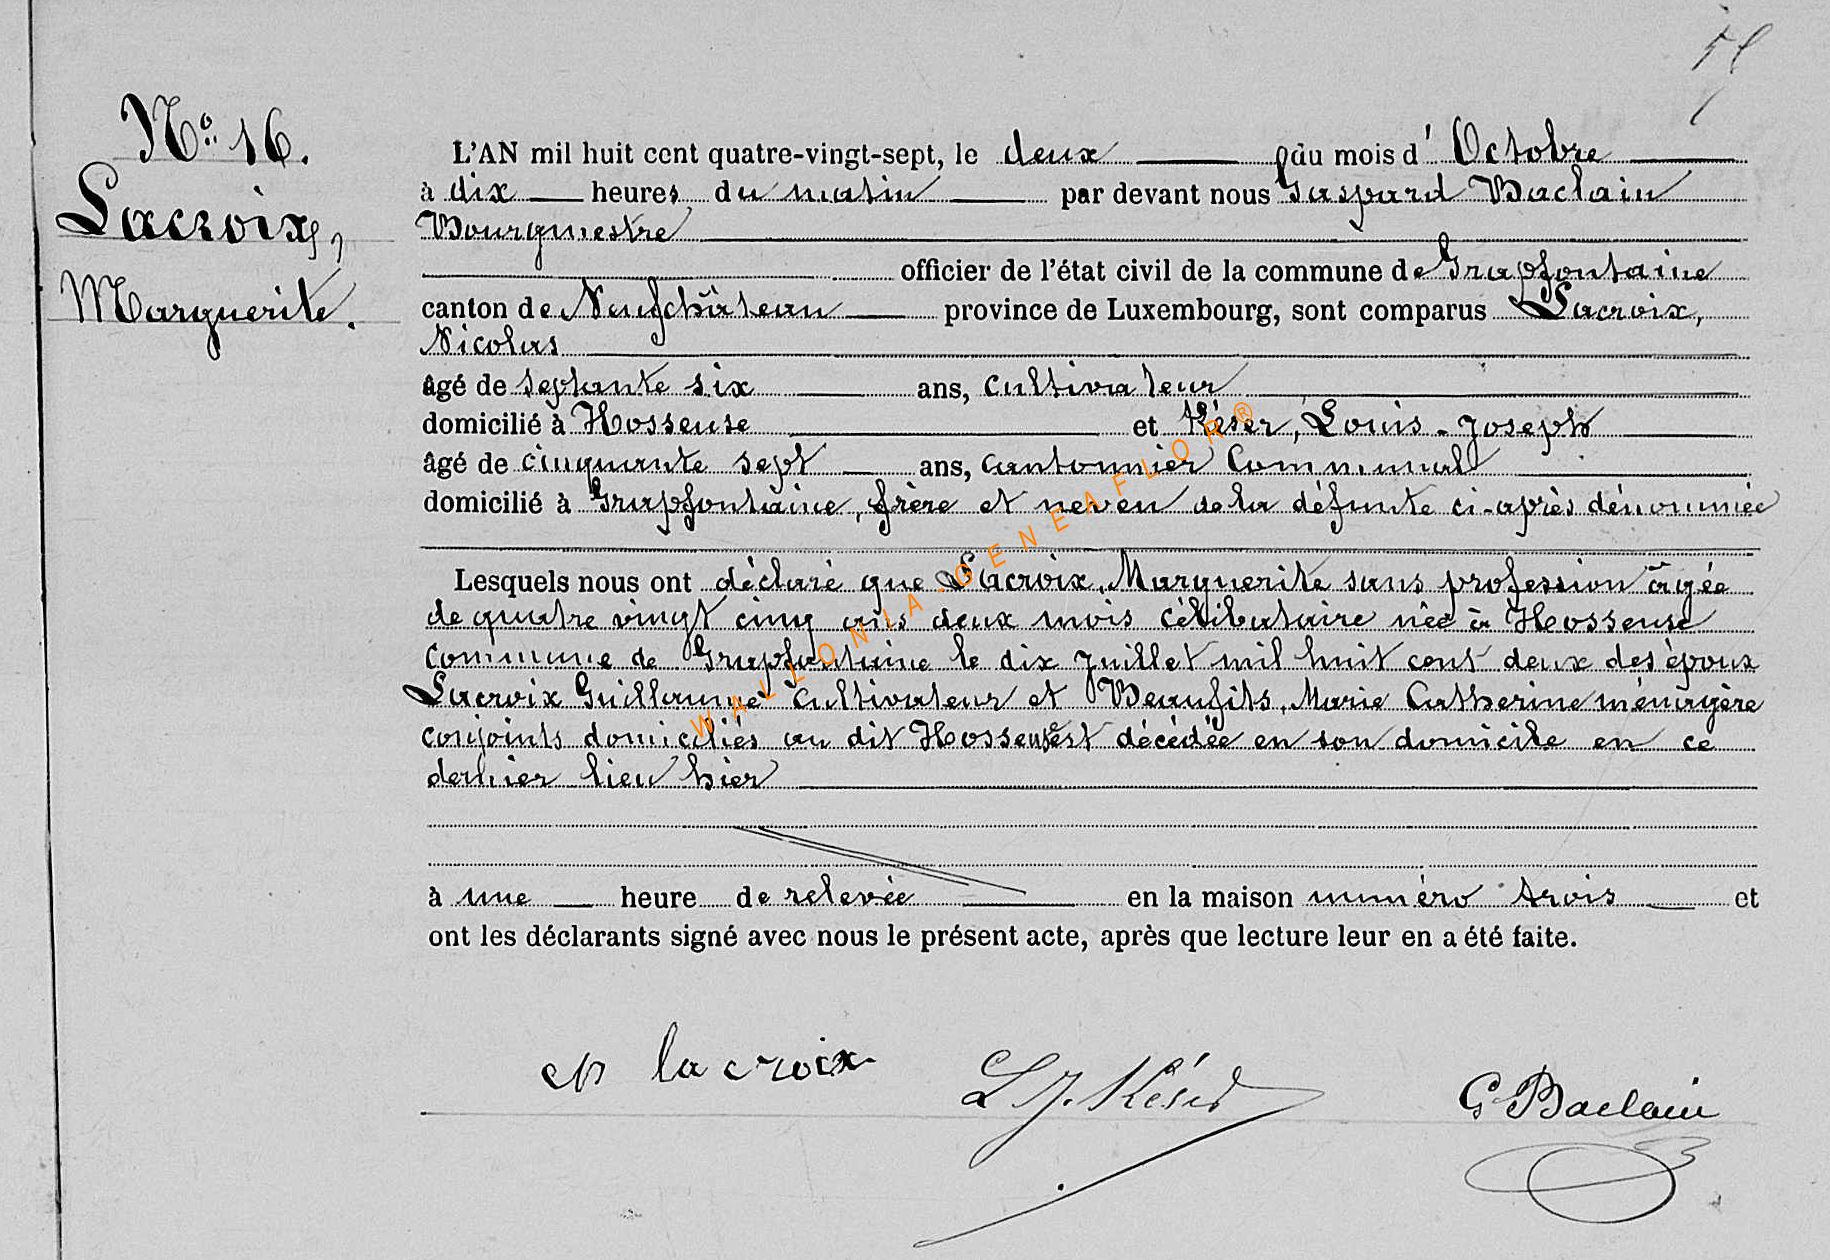 Nº 16.
Lacroix,
Marguerite.
L'AN mil huit cent quatre-vingt-sept, le deux du mois d' Octobre
à dix heures du matin par devant nous Gaspard Baclain
Bourgmestre
officier de l'état civil de la commune de Grapfontaine
canton de Neufchâteau province de Luxembourg, sont comparus Lacroix,
Nicolas
âgé de septante six ans, cultivateur
domicilié à Hosseuse et Késer, Louis-Joseph
âgé de cinquante sept ans, cantonnier communal
domicilié à Grapfontaine, frère et neveu de la défunte ci-après dénommée
Lesquels nous ont déclaré que Lacroix, Marguerite sans profession âgée
de quatre vingt cinq ans deux mois célibataire née à Hosseuse
commune de Grapfontaine le dix juillet mil huit cent deux des époux
Lacroix Guillaume cultivateur et Beaufils, Marie Catherine ménagère
conjoints domiciliés au dit Hosseuse est décédée en son domicile en ce
dernier lieu hier
à une heure de relevée en la maison numéro trois et
ont les déclarants signé avec nous le présent acte, après que lecture leur en a été faite.
N lacroix L J. Késer G Baclain
WALLONIA-GENEAFLOR®